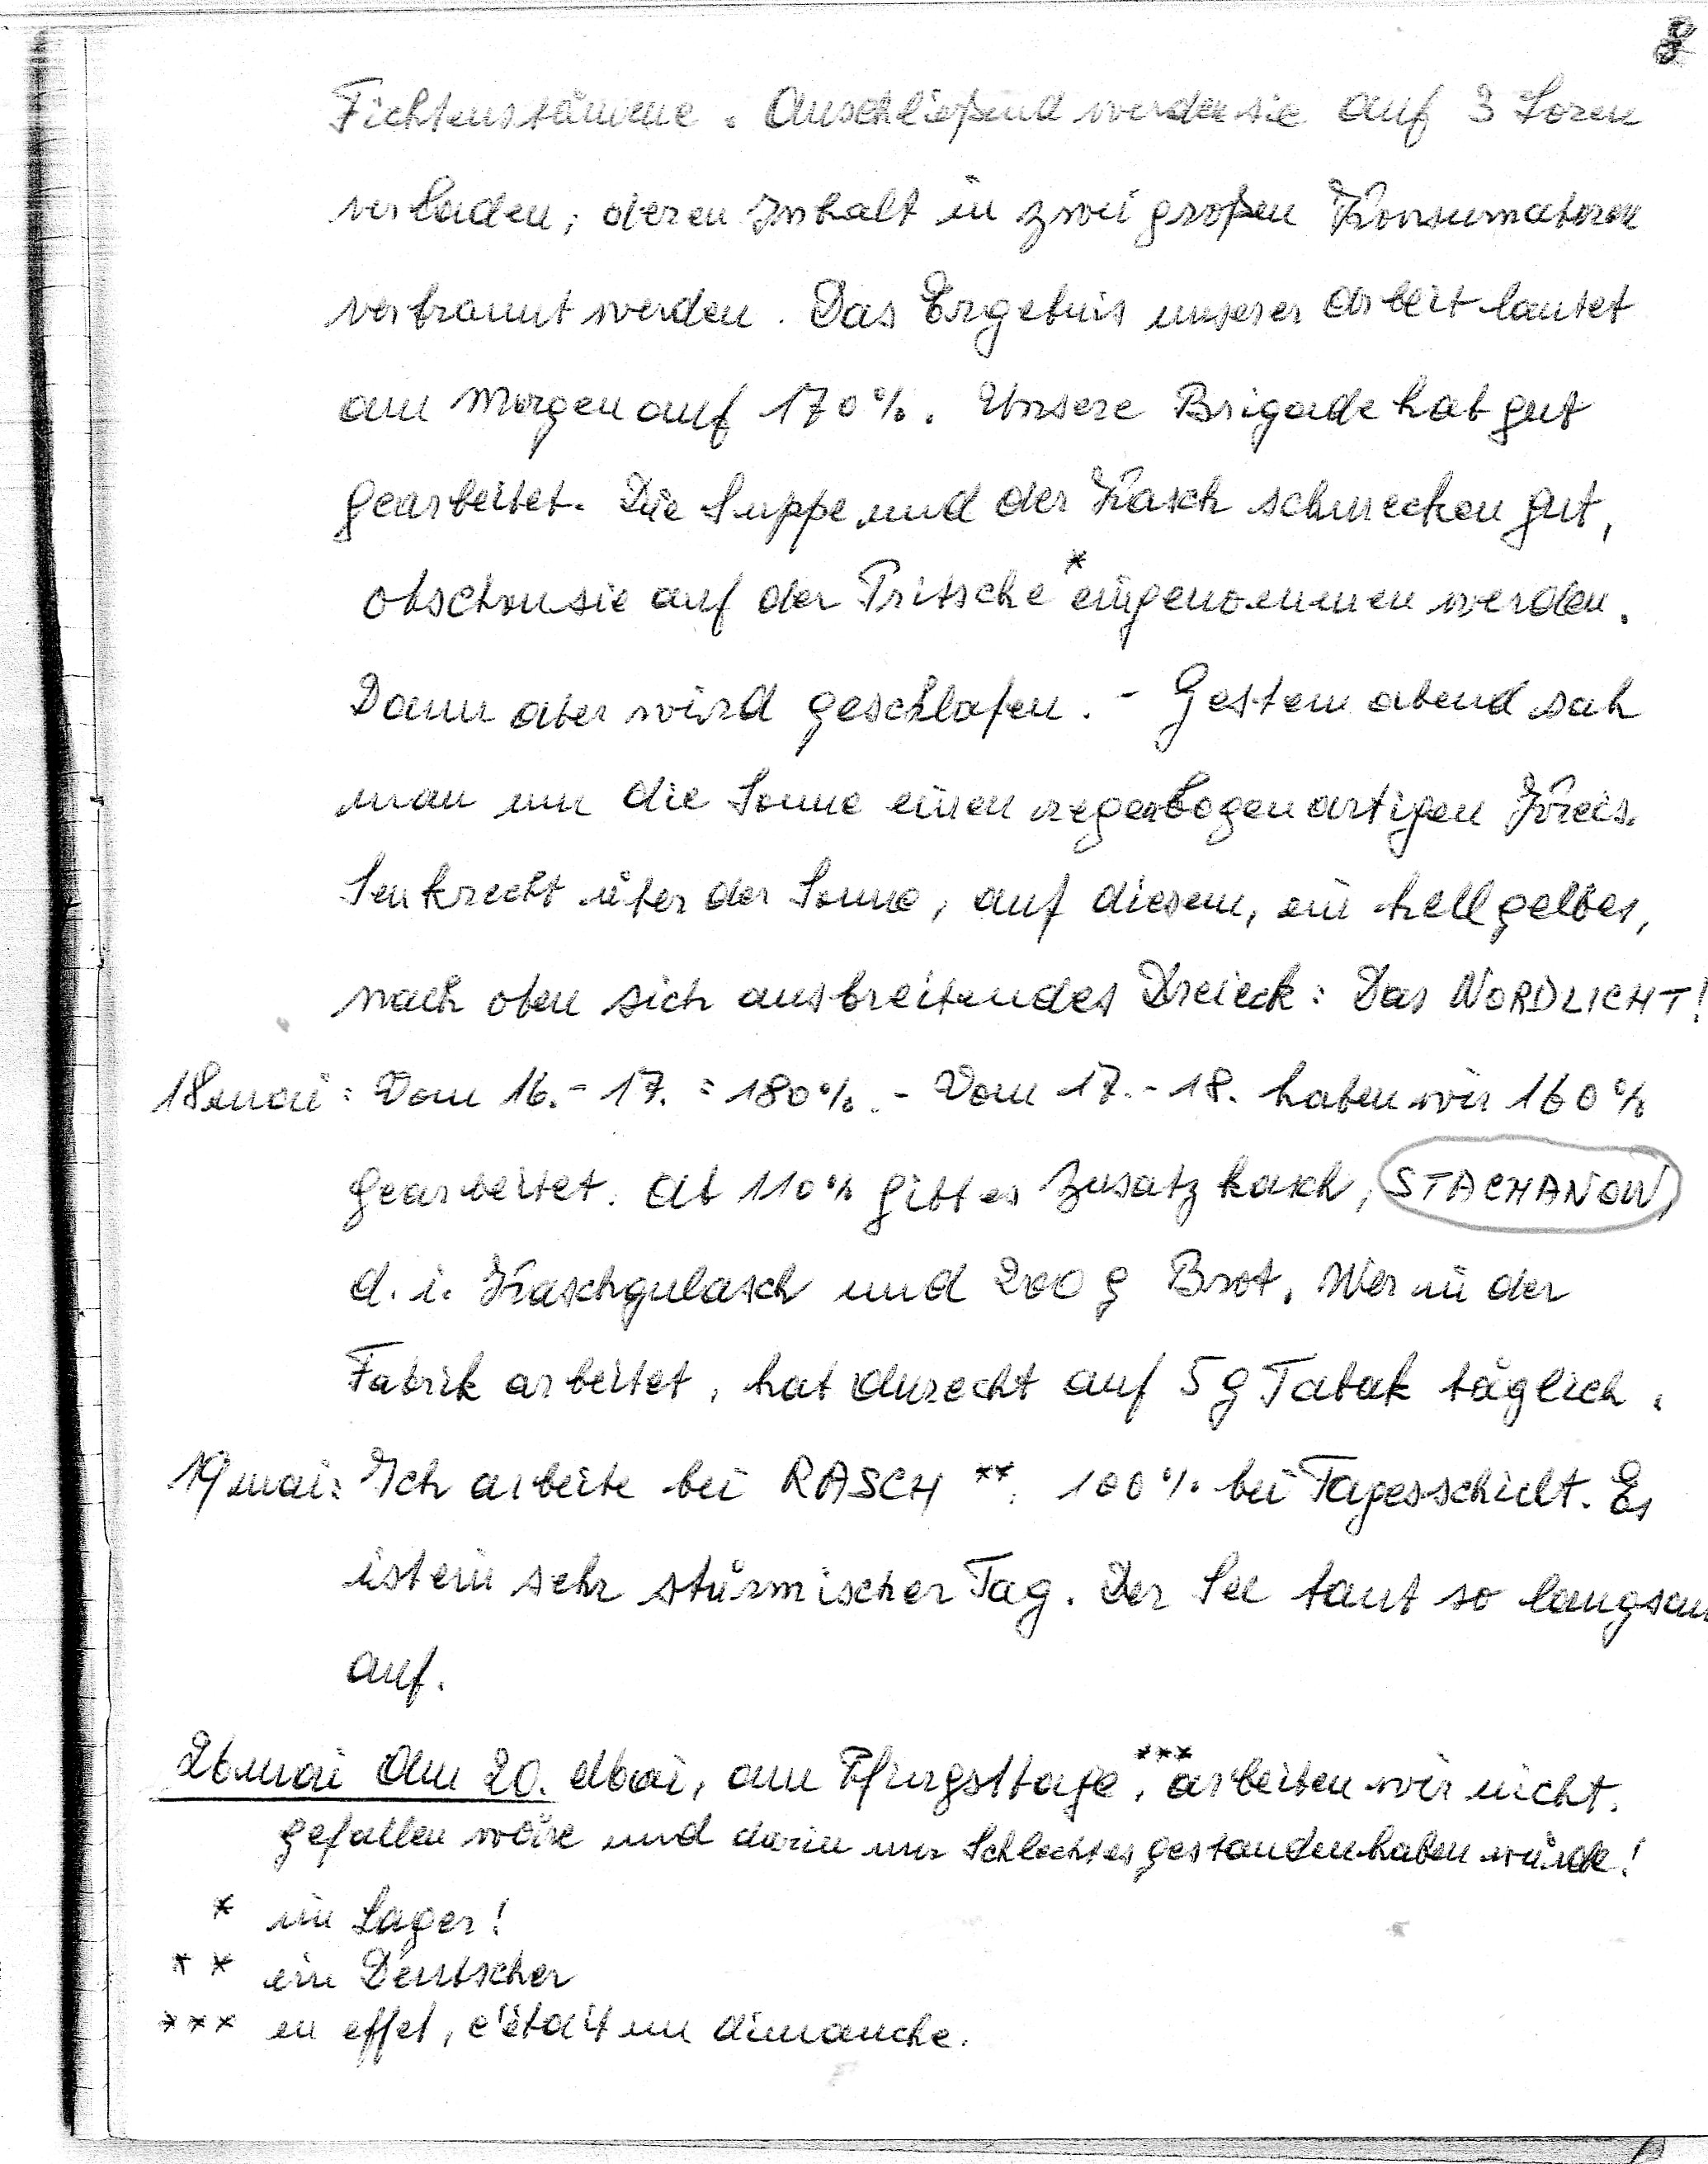 8
Fichtenstämme. Anschließend werden sie auf 3 Loren
verladen, deren Inhalt in zwei großen Konsumatoren
verbrannt werden. Das Ergebnis unserer Arbeit lautet
am Morgen auf 170%. Unsere Brigade hat gut
gearbeitet. Die Suppe und der Kasch schmecken gut,
obschon sie auf der Pritsche * eingenommen werden.
Dann aber wird geschlafen. - Gestern abend sah
man um die Sonne einen regenbogenartigen Kreis.
Senkrecht über der Sonne, auf diesem, ein hellgelber,
nach oben sich ausbreitendes Dreieck: Das NORDLICHT!
18 mai: Vom 16.- 17. = 180%. - Vom 17.- 18. haben wir 160%
gearbeitet. Ab 110% gibt es Zusatzkasch, STACHANOW,
d. i. Kaschgulasch und 200 g Brot. Wer in der
Fabrik arbeitet, hat Anrecht auf 5 g Tabak täglich.
19 mai: Ich arbeite bei RASCH **. 100% bei Tagesschicht. Es
ist ein sehr stürmischer Tag. Der See taut so langsam
auf.
26 mai Am 20. Mai, am Pfingsttage ***, arbeiten wir nicht.
gefallen wäre und darin nur Schlechtes gestanden haben würde!
* im Lager!
** ein Deutscher
*** en effet, c'était un dimanche.